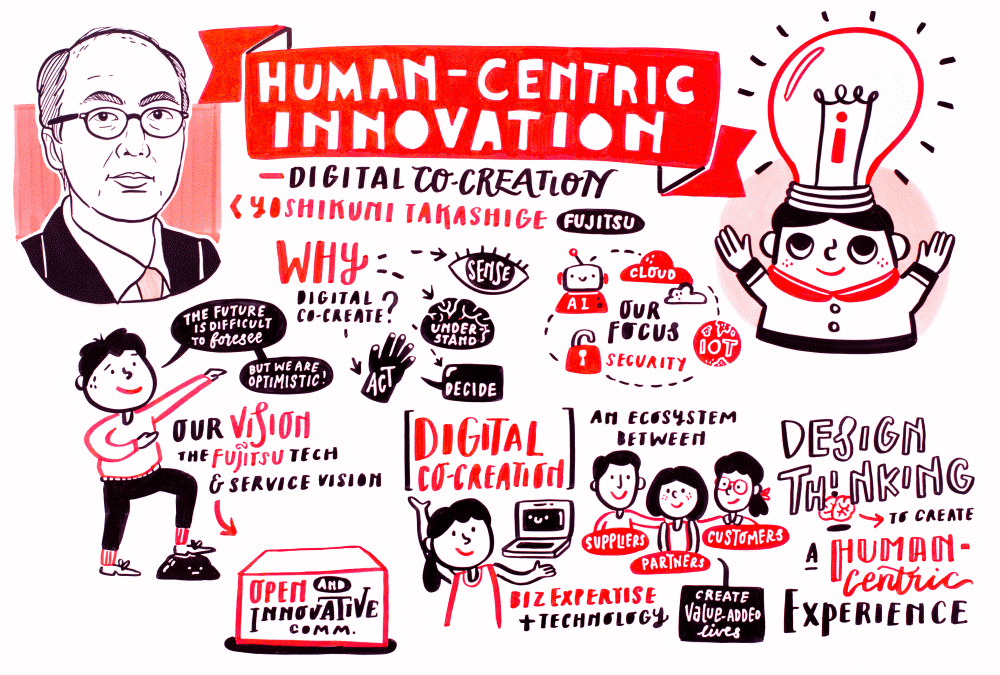 HUMAN-CENTRIC
INNOVATION
i
— DIGITAL CO-CREATION
< YOSHIKUNI TAKASHIGE FUJITSU
WHY
DIGITAL
CO-CREATE?
SENSE
UNDER-
STAND
DECIDE
ACT
AI
CLOUD
OUR
FOCUS
IOT
SECURITY
THE FUTURE
IS DIFFICULT
TO foresee
BUT WE ARE
OPTIMISTIC!
OUR VISION
THE FUJITSU TECH
& SERVICE VISION
OPEN AND
INNOVATIVE
COMM.
[DIGITAL
CO-CREATION]
BIZ EXPERTISE
+ TECHNOLOGY
AN ECOSYSTEM
BETWEEN
SUPPLIERS
PARTNERS
CUSTOMERS
CREATE
VALUE-ADDED
lives
DESIGN
THINKING
→ TO CREATE
A HUMAN-
centric
EXPERIENCE